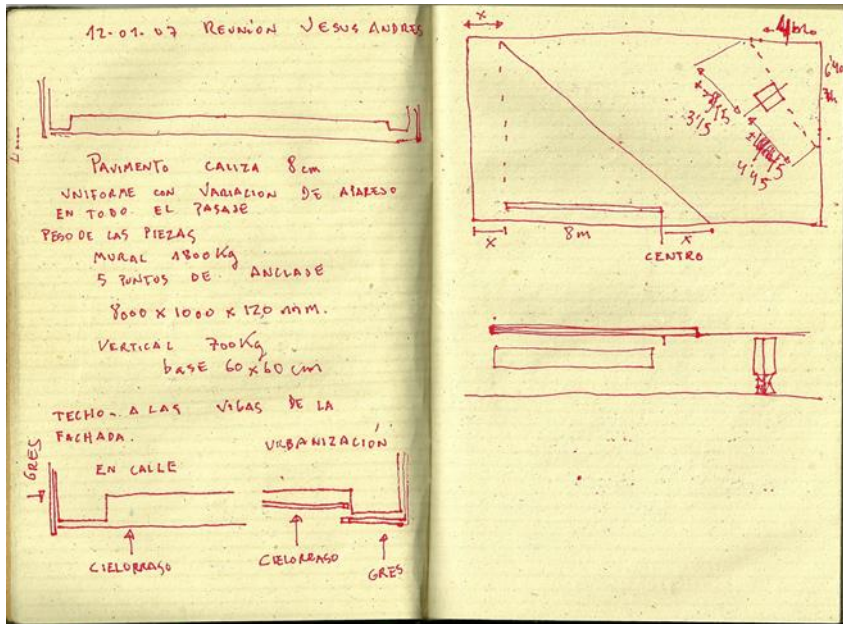 12-01-07 REUNION JESUS ANDRES
PAVIMENTO CALIZA 8 cm
UNIFORME CON VARIACION DE APAREJO
EN TODO EL PASAJE
PESO DE LAS PIEZAS
MURAL 1800 Kg
5 PUNTOS DE ANCLAJE
8000 x 1000 x 120 mm.
VERTICAL 700 Kg
base 60 x 60 cm
TECHO - A LAS VIGAS DE LA
FACHADA.
URBANIZACIÓN
GRES
EN CALLE
CIELORRASO
CIELORRASO
GRES
x
6'40
3'15
4'45
x
8 m
x
CENTRO